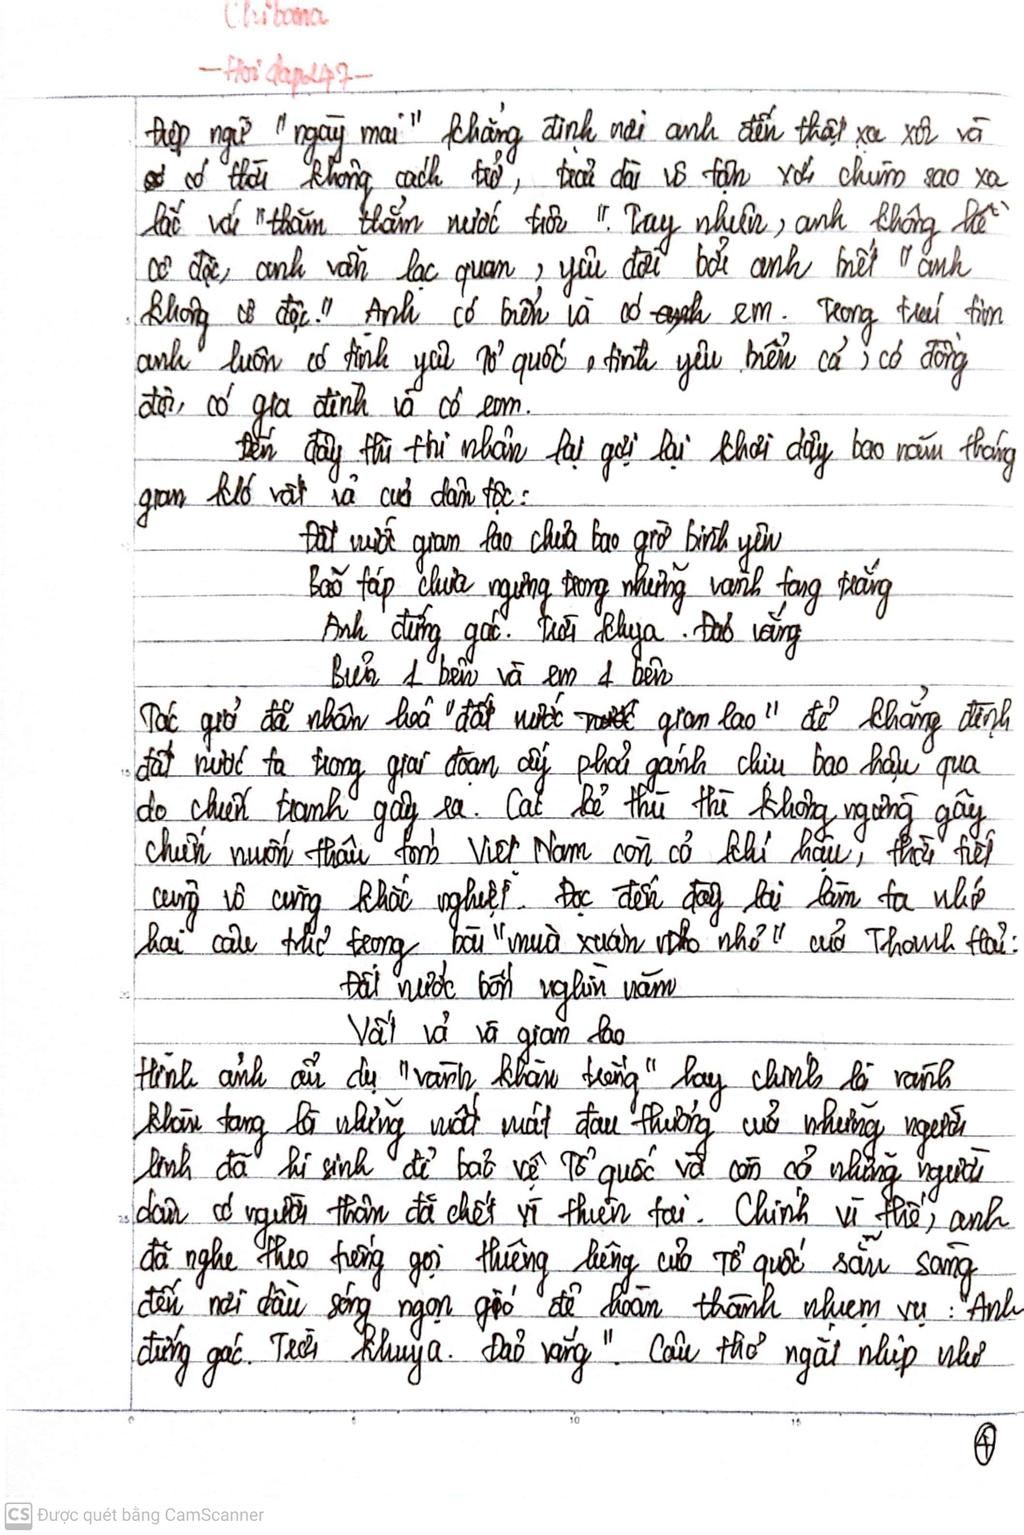 Chibana
-Hoidap247-
Điệp ngữ "ngày mai" khẳng định nơi anh đến thật xa xôi và
có thời không cách trở, trải dài vô tận với chùm sao xa
lắc với "thăm thẳm nước trôi". Tuy nhiên, anh không hề
cô độc, anh vẫn lạc quan, yêu đời bởi anh biết "anh
không cô độc." Anh có biển và có em. Trong trái tim
anh luôn có tình yêu Tổ quốc, tình yêu biển cả, có đồng
đội, có gia đình và có em.
Đến đây thì thi nhân lại gợi lại khơi dậy bao năm tháng
gian khó vất vả của dân tộc:
Đất nước gian lao chưa bao giờ bình yên
Bão táp chưa ngưng trong những vành tang trắng
Anh đứng gác. Trời khuya. Đảo vắng
Biển 1 bên và em 1 bên
Tác giả đã nhân hoá "đất nước gian lao" để khẳng định
đất nước ta trong giai đoạn ấy phải gánh chịu bao hậu quả
do chiến tranh gây ra. Các kẻ thù thì không ngừng gây
chiến muốn thâu tóm Việt Nam còn cả khí hậu, thời tiết
cũng vô cùng khắc nghiệt. Đọc đến đây lại làm ta nhớ
hai câu thơ trong bài "mùa xuân nho nhỏ" của Thanh Hải:
Đất nước bốn nghìn năm
Vất vả và gian lao
Hình ảnh ẩn dụ "vành khăn trắng" hay chính là vành
khăn tang là những mất mát đau thương của những người
lính đã hi sinh để bảo vệ Tổ quốc và còn có những người
dân có người thân đã chết vì thiên tai. Chính vì thế, anh
đã nghe theo tiếng gọi thiêng liêng của Tổ quốc sẵn sàng
đến nơi đầu sóng ngọn gió để hoàn thành nhiệm vụ: "Anh
đứng gác. Trời khuya. Đảo vắng". Câu thơ ngắt nhịp như
5
15
20
25
0 5 10 15
4
CS Được quét bằng CamScanner